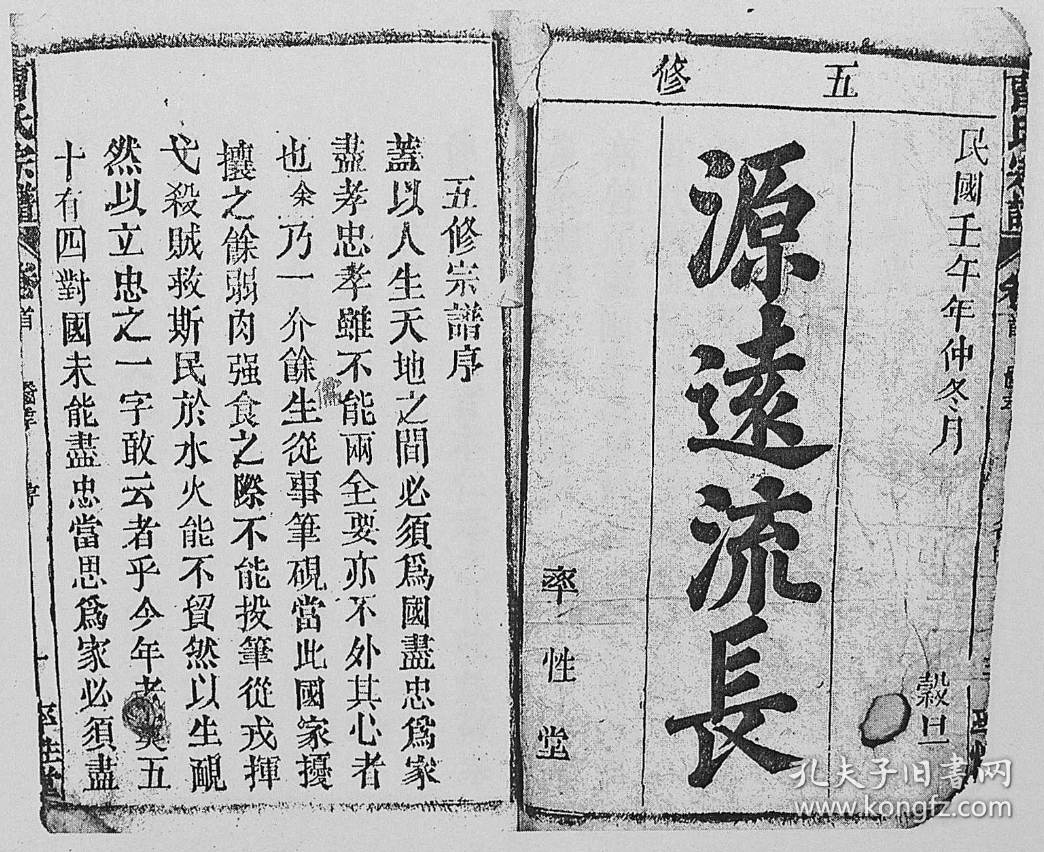 五修
民國壬午年仲冬月
穀旦
源遠流長
率性堂
五修宗譜序
蓋以人生天地之間必須爲國盡忠爲家
盡孝忠孝雖不能兩全要亦不外其心者
也余乃一介餘生從事筆硯當此國家擾
攘之餘弱肉强食之際不能投筆從戎揮
戈殺賊救斯民於水火能不貿然以生覥
然以立忠之一字敢云者乎今年者五
十有四對國未能盡忠當思爲家必須盡
氏宗譜
卷首
序
一
率性堂
孔夫子旧书网
www.kongfz.com